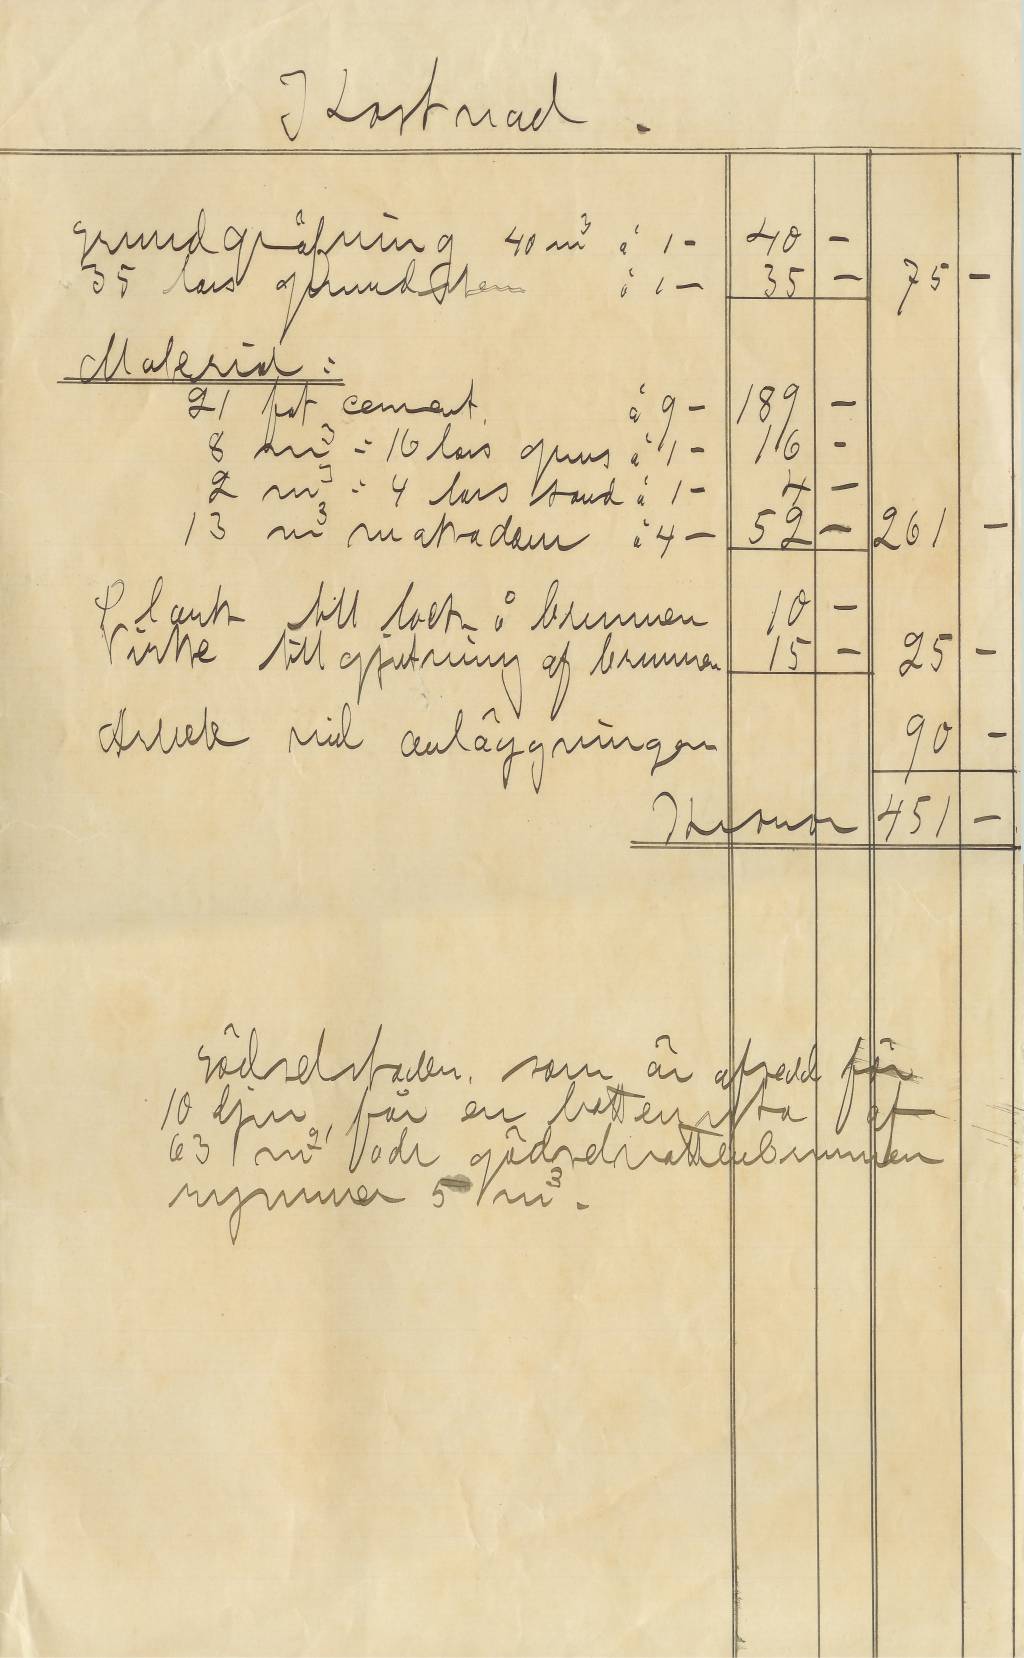 Kostnad.
Grundgräfning 40 m³ à 1- 40 -
35 lass grundsten à 1- 35 - 75 -
Material:
21 fat cement à 9- 189 -
8 m³ = 16 lass grus à 1- 16 -
2 m³ = 4 lass sand à 1- 4 -
13 m³ makadam à 4- 52 - 261 -
Plank till lock å brunnen 10 -
Virke till gjutning af brunnen 15 - 25 -
Arbete vid anläggningen 90 -
Kronor 451 -
Gödselstaden, som är afsedd för
10 djur, får en bottenyta af
63 m², och gödselvattenbrunnen
rymmer 5 m³.